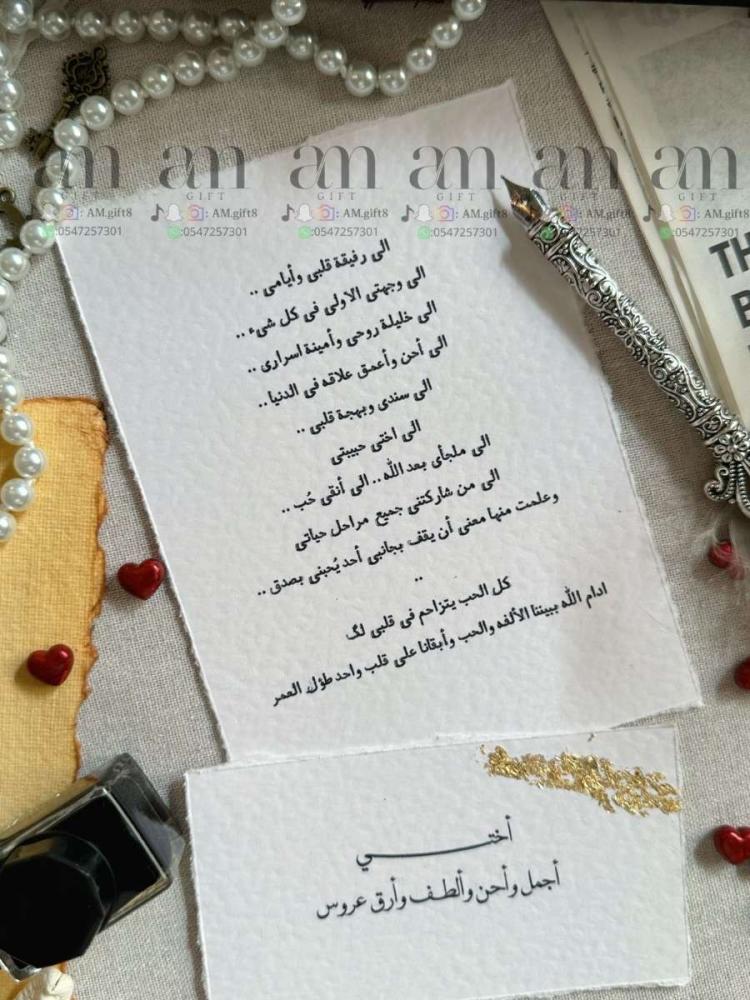 am am am am am am
GIFT GIFT GIFT GIFT GIFT GIFT
: AM.gift8 : AM.gift8 : AM.gift8 : AM.gift8 : AM.gift8 : AM.gift8
:0547257301 :0547257301 :0547257301 :0547257301 :0547257301 :0547257301
TH
B
الى رفيقة قلبي وأيامي ..
الى وجهتي الاولى في كل شيء ..
الى خليلة روحي وأمينة اسراري ..
الى أحن وأعمق علاقه في الدنيا ..
الى سندي وبهجة قلبي ..
الى اختي حبيبتي
الى ملجأي بعد الله .. الى أنقى حُب ..
الى من شاركتني جميع مراحل حياتي
وعلمت منها معنى أن يقف بجانبي أحد يُحبني بصدق ..
..
كل الحب يتزاحم في قلبي لگ
ادام الله بيننا الألفه والحب وأبقانا على قلب واحد طؤل العمر
أختـــــي
أجمل وأحن وألطـف وأرق عروس